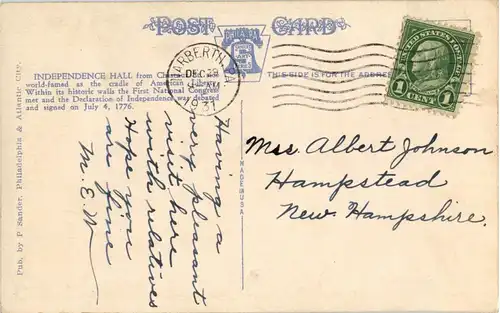 POST CARD
INDEPENDENCE HALL from
world-famed as the cradle of American Liberty.
Within its historic walls the First National Congress
met and the Declaration of Independence was debated
and signed on July 4, 1776.
THIS SIDE IS FOR THE ADDRESS
NARBERTH, PA.
DEC 29
PM
1931
UNITED STATES POSTAGE
1 CENT 1
Having a
very pleasant
visit here
with relatives
Hope you
are fine
M. E. W
MADE IN USA
Mrs. Albert Johnson
Hampstead
New Hampshire.
Pub. by P. Sander, Philadelphia & Atlantic City.